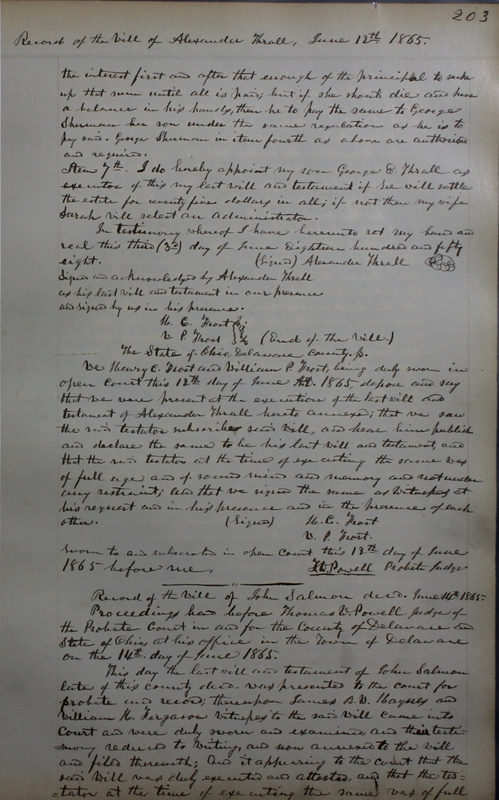 203
Record of the Will of Alexander Thrall, June 12th 1865.
the interest first and after that enough of the principal to make
up that sum until all is paid; but if she should die and have
a balance in his hands, then he to pay the same to George
Sherman her son under the same regulation as he is to
pay said George Sherman in item fourth as above are authorised
and required.
Item 7th. I do hereby appoint my son George D. Thrall as
executor of this my last will and testament if he will settle
the estate for twenty five dollars in all; if not then my wife
Sarah will select an Administrator.
In testimony whereof I have hereunto set my hand and
seal this third (3d) day of June Eighteen hundred and fifty
eight. (Signed) Alexander Thrall
Signed and acknowledged by Alexander Thrall
as his last will and testament in our presence
and signed by us in his presence.
H. C. Frost
W. P. Frost (End of the Will.)
The State of Ohio, Delaware County. ss.
We Henry C. Frost and William P. Frost, being duly sworn in
open Court this 12th day of June A.D. 1865 depose and say
that we were present at the execution of the last will and
testament of Alexander Thrall hereto annexed; that we saw
the said testator subscribe said Will, and heard him publish
and declare the same to be his last will and testament, and
that the said testator at the time of executing the same was
of full age and of sound mind and memory and not under
any restraint; and that we signed the same as Witnesses at
his request and in his presence and in the presence of each
other. (Signed) H. C. Frost
W. P. Frost.
Sworn to and subscribed in open Court this 12th day of June
1865 before me, T.W. Powell Probate Judge
Record of the Will of John Salmon decd. June 14th 1865.
Proceedings had before Thomas W. Powell Judge of
the Probate Court in and for the County of Delaware and
State of Ohio, at his office in the Town of Delaware
on the 14th day of June 1865.
This day the last will and testament of John Salmon
late of this county decd. was presented to the court for
probate and record; thereupon James B. W. Haynes and
William H. Ferguson Witnesses to the said Will came into
Court and were duly sworn and examined and their testi-
mony reduced to Writing, and now annexed to the will
and filed therewith; And it appearing to the court that the
said Will was duly executed and attested, and that the tes-
tator at the time of executing the same was of full